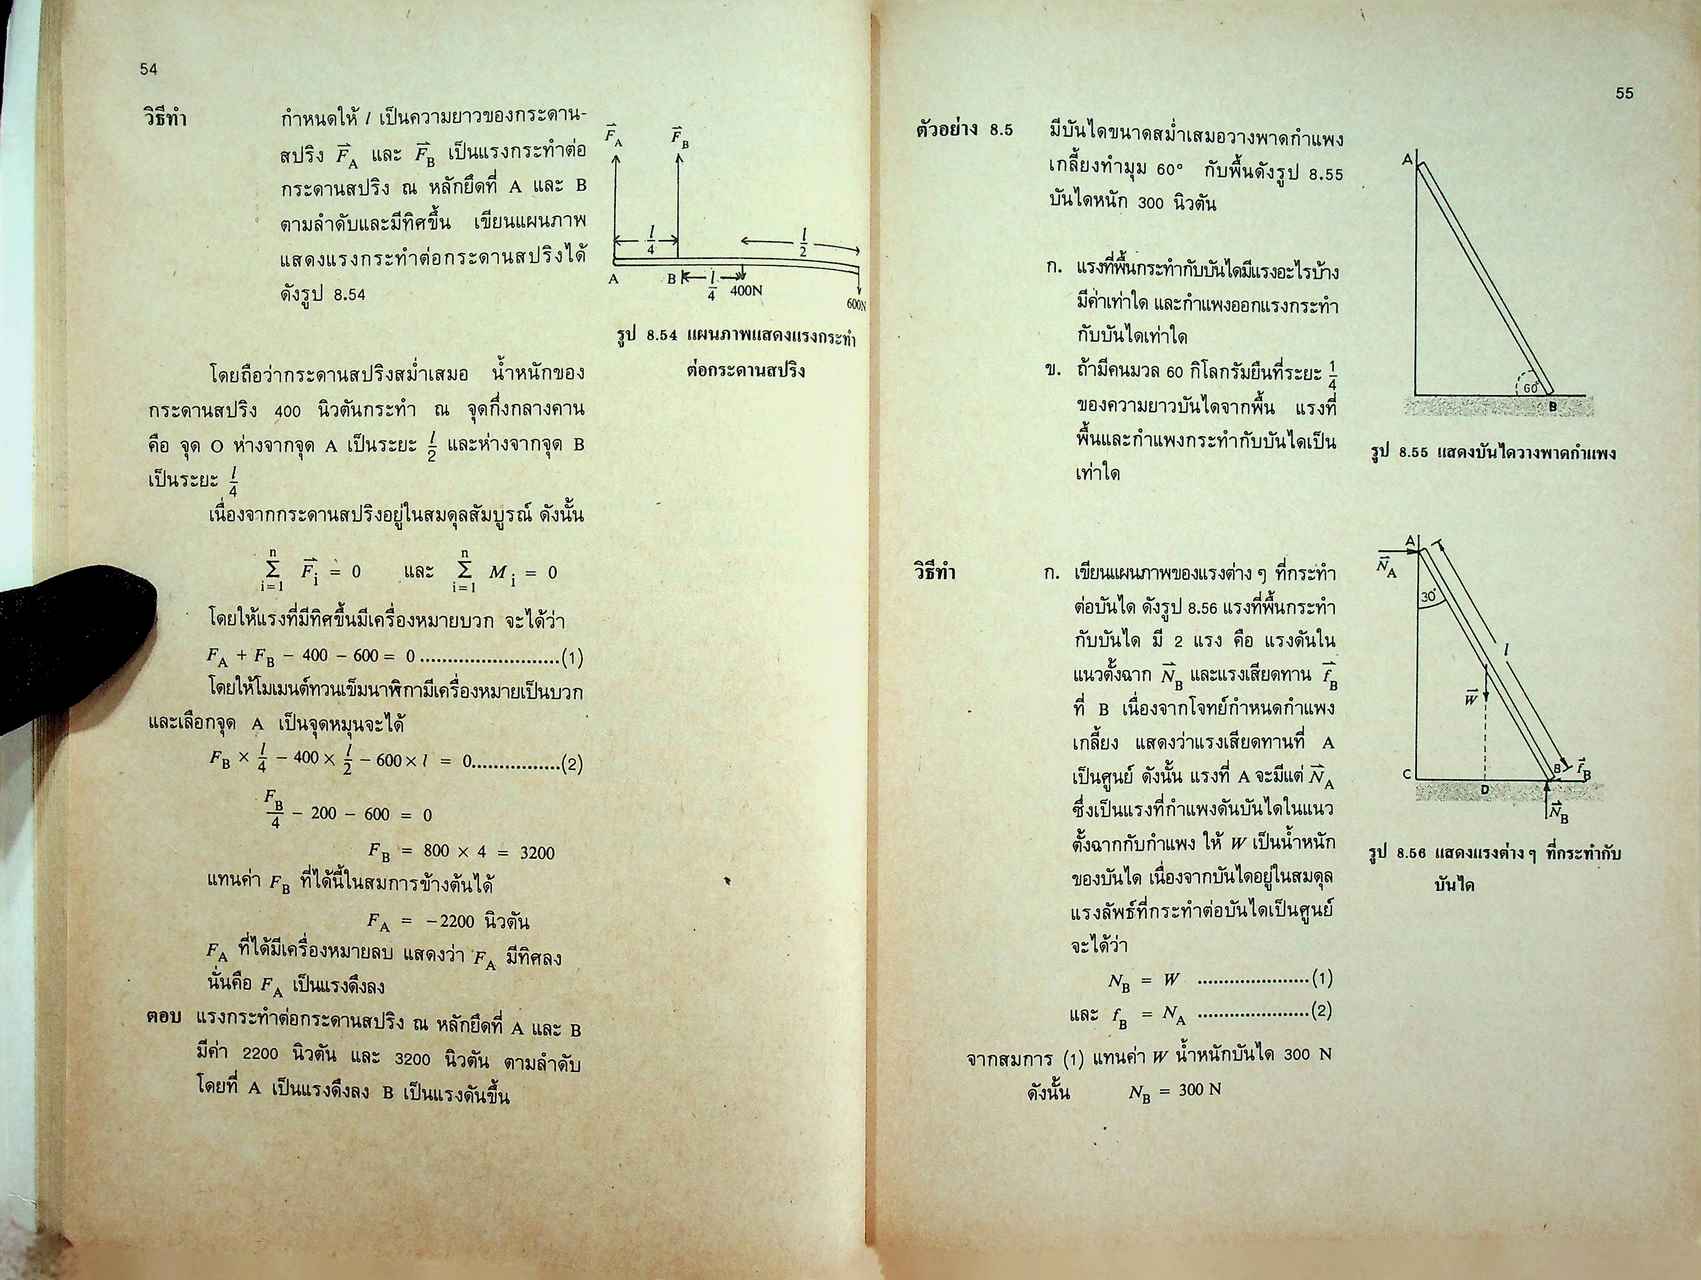 54
วิธีทำ กำหนดให้ l เป็นความยาวของกระดาน-
สปริง F⃗A และ F⃗B เป็นแรงกระทำต่อ
กระดานสปริง ณ หลักยึดที่ A และ B
ตามลำดับและมีทิศขึ้น เขียนแผนภาพ
แสดงแรงกระทำต่อกระดานสปริงได้
ดังรูป 8.54
F⃗A F⃗B
l/4 l/2
A B l/4 400N 600N
รูป 8.54 แผนภาพแสดงแรงกระทำ
ต่อกระดานสปริง
โดยถือว่ากระดานสปริงสม่ำเสมอ น้ำหนักของ
กระดานสปริง 400 นิวตันกระทำ ณ จุดกึ่งกลางคาน
คือ จุด O ห่างจากจุด A เป็นระยะ l/2 และห่างจากจุด B
เป็นระยะ l/4
เนื่องจากกระดานสปริงอยู่ในสมดุลสัมบูรณ์ ดังนั้น
n Σ i=1 F⃗i = 0 และ n Σ i=1 Mi = 0
โดยให้แรงที่มีทิศขึ้นมีเครื่องหมายบวก จะได้ว่า
FA + FB − 400 − 600 = 0 .........................(1)
โดยให้โมเมนต์ทวนเข็มนาฬิกามีเครื่องหมายเป็นบวก
และเลือกจุด A เป็นจุดหมุนจะได้
FB × l/4 − 400 × l/2 − 600 × l = 0................(2)
FB/4 − 200 − 600 = 0
FB = 800 × 4 = 3200
แทนค่า FB ที่ได้นี้ในสมการข้างต้นได้
FA = −2200 นิวตัน
FA ที่ได้มีเครื่องหมายลบ แสดงว่า FA มีทิศลง
นั่นคือ FA เป็นแรงดึงลง
ตอบ แรงกระทำต่อกระดานสปริง ณ หลักยึดที่ A และ B
มีค่า 2200 นิวตัน และ 3200 นิวตัน ตามลำดับ
โดยที่ A เป็นแรงดึงลง B เป็นแรงดันขึ้น
55
ตัวอย่าง 8.5 มีบันไดขนาดสม่ำเสมอวางพาดกำแพง
เกลี้ยงทำมุม 60° กับพื้นดังรูป 8.55
บันไดหนัก 300 นิวตัน
ก. แรงที่พื้นกระทำกับบันไดมีแรงอะไรบ้าง
มีค่าเท่าใด และกำแพงออกแรงกระทำ
กับบันไดเท่าใด
ข. ถ้ามีคนมวล 60 กิโลกรัมยืนที่ระยะ 1/4
ของความยาวบันไดจากพื้น แรงที่
พื้นและกำแพงกระทำกับบันไดเป็น
เท่าใด
A
60°
B
รูป 8.55 แสดงบันไดวางพาดกำแพง
วิธีทำ ก. เขียนแผนภาพของแรงต่าง ๆ ที่กระทำ
ต่อบันได ดังรูป 8.56 แรงที่พื้นกระทำ
กับบันได มี 2 แรง คือ แรงดันใน
แนวตั้งฉาก N⃗B และแรงเสียดทาน f⃗B
ที่ B เนื่องจากโจทย์กำหนดกำแพง
เกลี้ยง แสดงว่าแรงเสียดทานที่ A
เป็นศูนย์ ดังนั้น แรงที่ A จะมีแต่ N⃗A
ซึ่งเป็นแรงที่กำแพงดันบันไดในแนว
ตั้งฉากกับกำแพง ให้ W เป็นน้ำหนัก
ของบันได เนื่องจากบันไดอยู่ในสมดุล
แรงลัพธ์ที่กระทำต่อบันไดเป็นศูนย์
จะได้ว่า
NB = W ....................(1)
และ fB = NA ....................(2)
จากสมการ (1) แทนค่า W น้ำหนักบันได 300 N
ดังนั้น NB = 300 N
A
N⃗A
30°
l
W⃗
C D B f⃗B
N⃗B
รูป 8.56 แสดงแรงต่าง ๆ ที่กระทำกับ
บันได